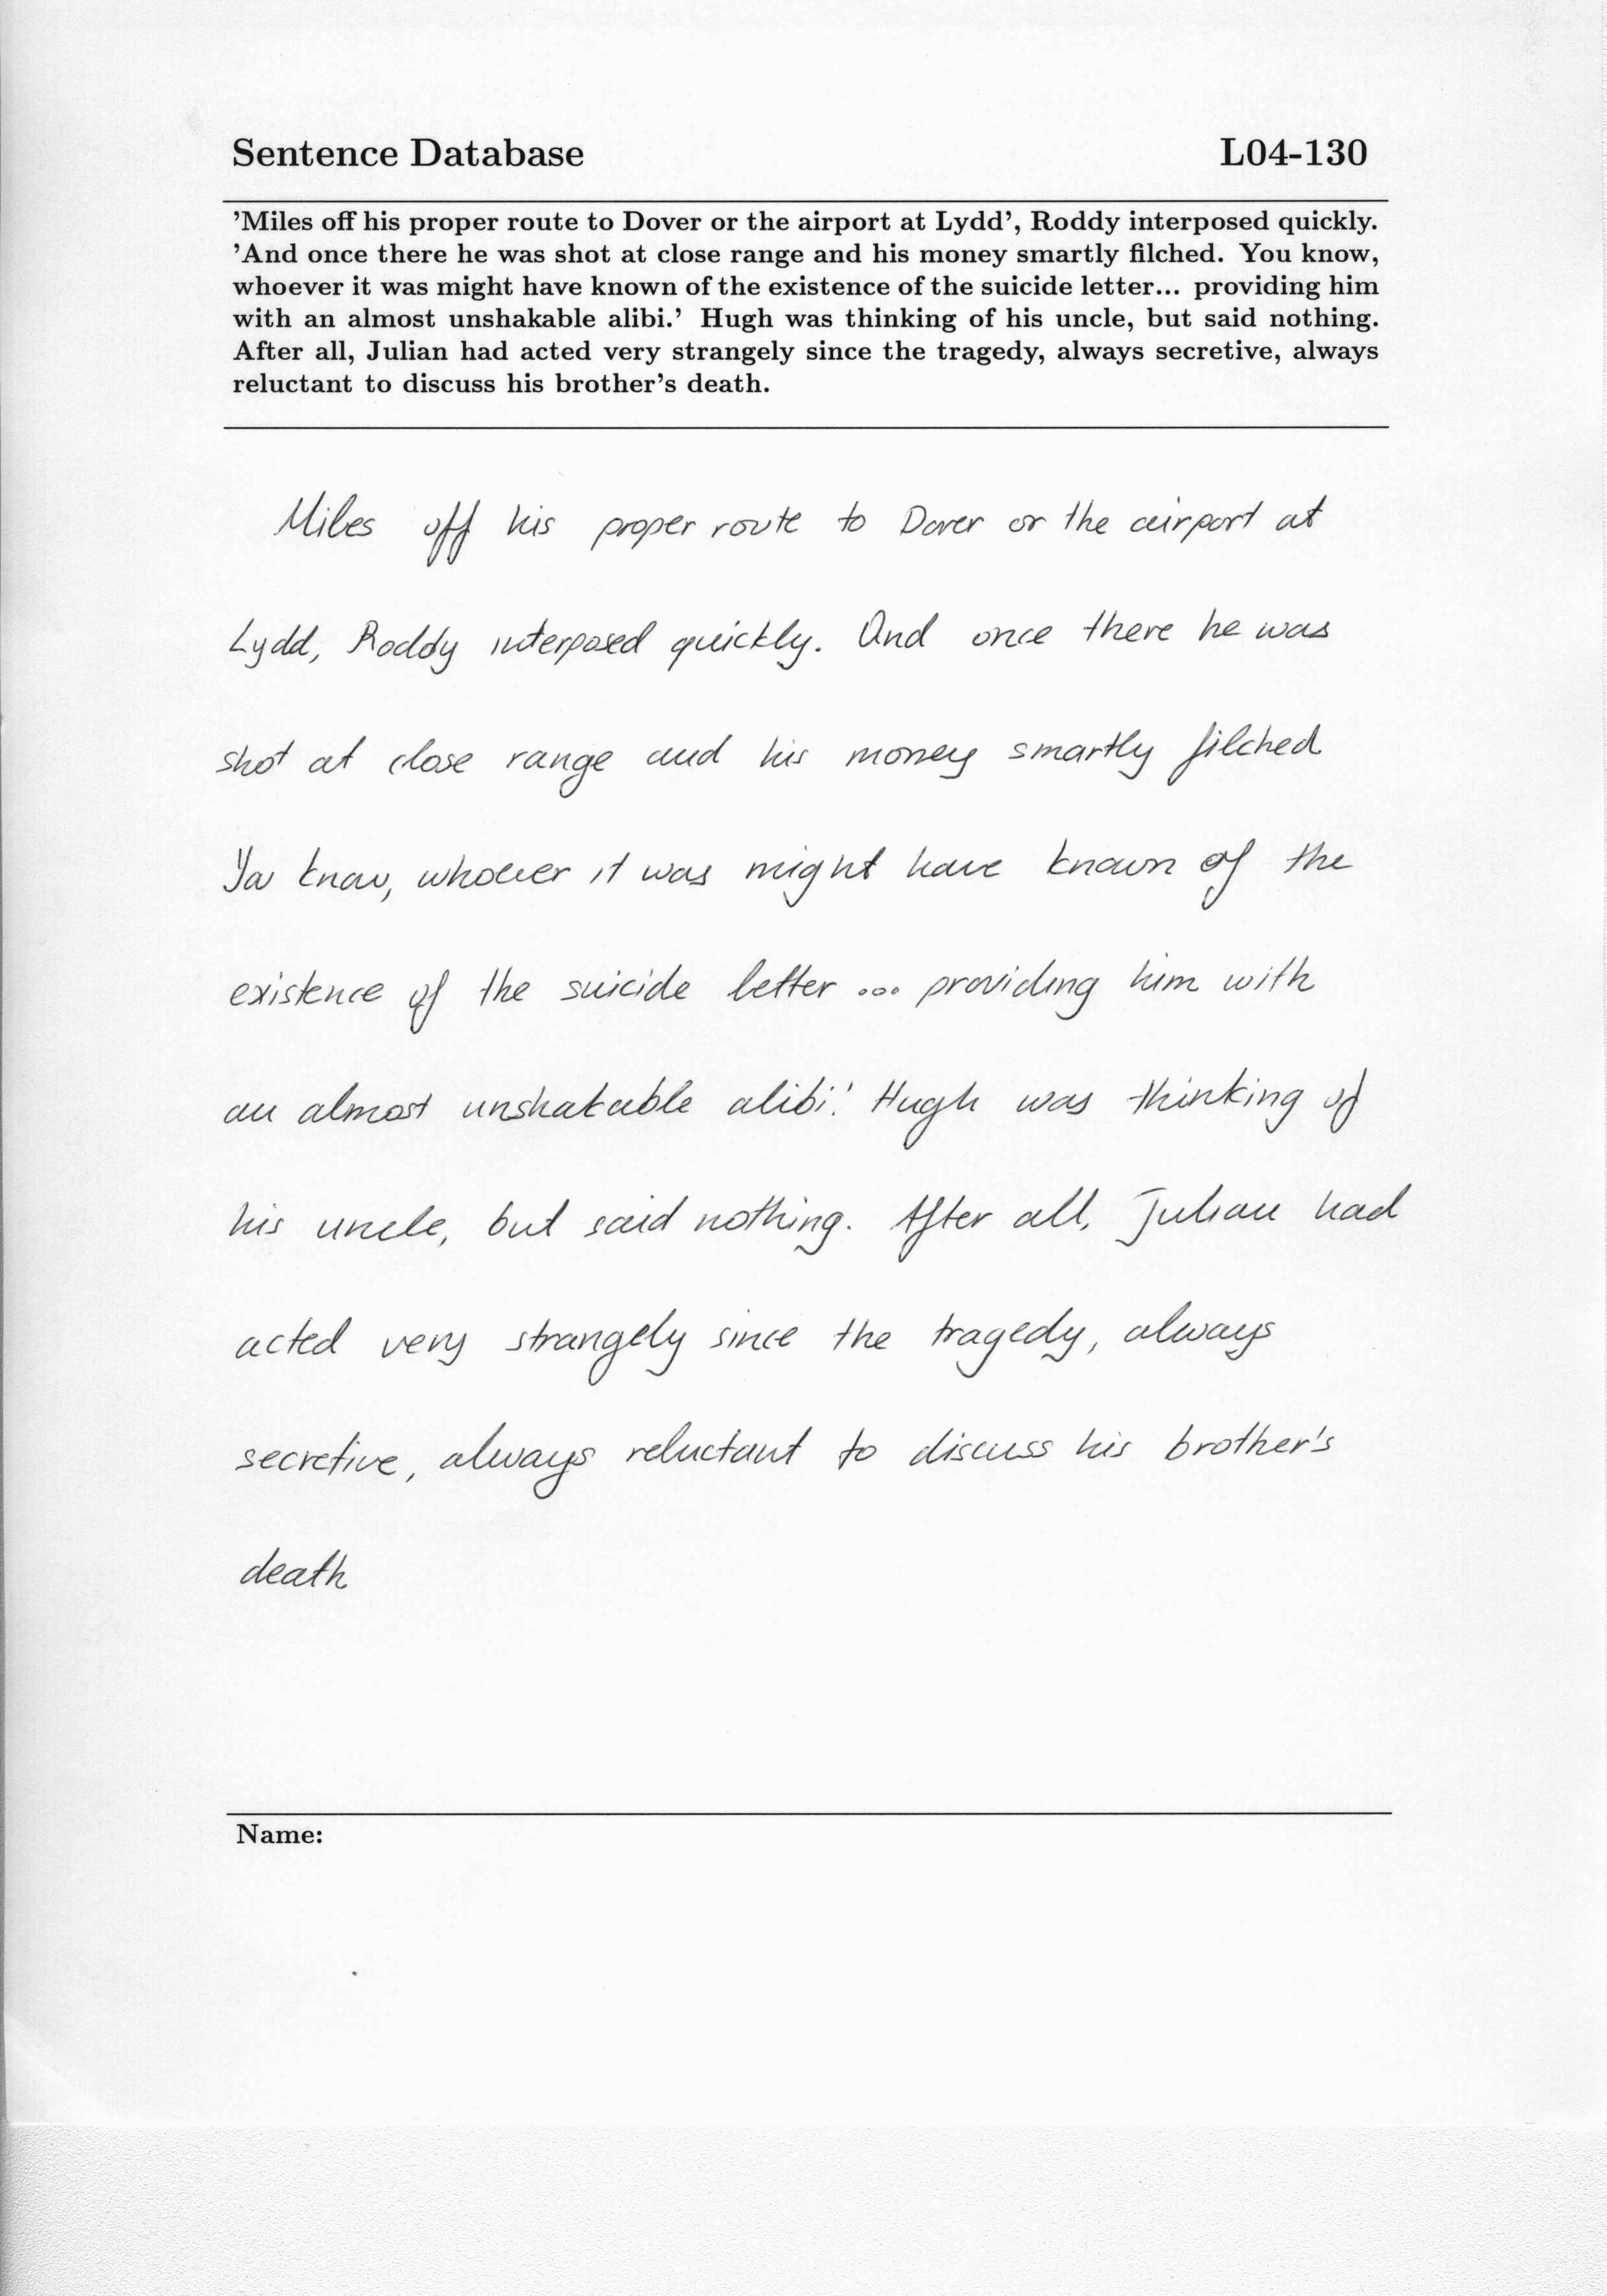 Sentence Database L04-130
'Miles off his proper route to Dover or the airport at Lydd', Roddy interposed quickly.
'And once there he was shot at close range and his money smartly filched. You know,
whoever it was might have known of the existence of the suicide letter... providing him
with an almost unshakable alibi.' Hugh was thinking of his uncle, but said nothing.
After all, Julian had acted very strangely since the tragedy, always secretive, always
reluctant to discuss his brother's death.
Miles off his proper route to Dover or the airport at
Lydd, Roddy interposed quickly. And once there he was
shot at close range and his money smartly filched
You know, whoever it was might have known of the
existence of the suicide letter ... providing him with
an almost unshakable alibi.' Hugh was thinking of
his uncle, but said nothing. After all, Julian had
acted very strangely since the tragedy, always
secretive, always reluctant to discuss his brother's
death
Name: